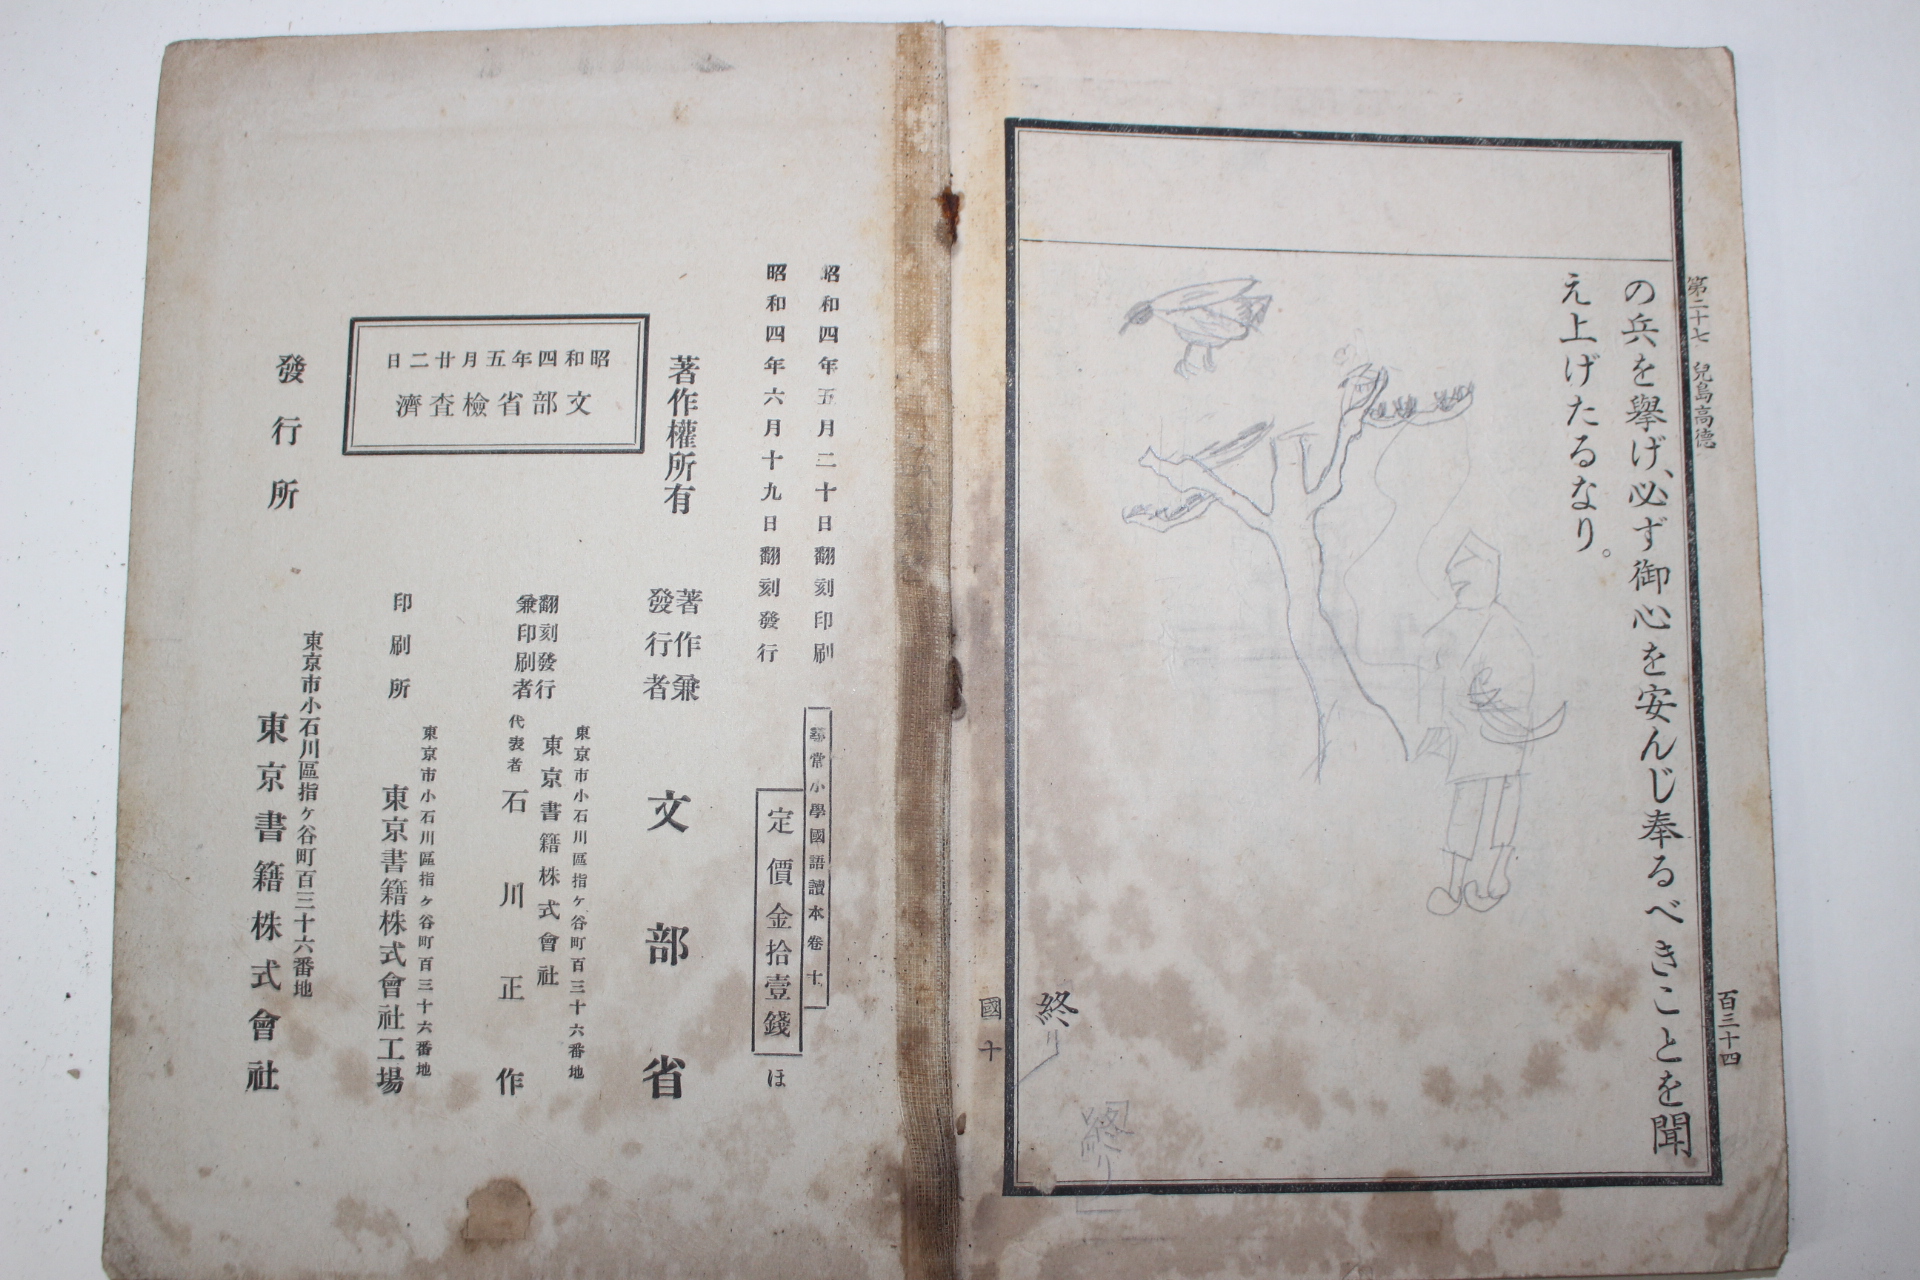 第二十七 兒島高德
百三十四
の兵を擧げ、必ず御心を安んじ奉るべきことを聞
え上げたるなり。
終り
終り
國十
昭和四年五月二十日翻刻印刷
昭和四年六月十九日翻刻發行
尋常小學國語讀本卷十
定價金拾壹錢
ほ
著作權所有
著作兼
發行者
文部省
翻刻發行
兼印刷者
東京市小石川區指ケ谷町百三十六番地
東京書籍株式會社
代表者 石川正作
印刷所
東京市小石川區指ケ谷町百三十六番地
東京書籍株式會社工場
昭和四年五月廿二日
文部省檢査濟
發行所
東京市小石川區指ケ谷町百三十六番地
東京書籍株式會社